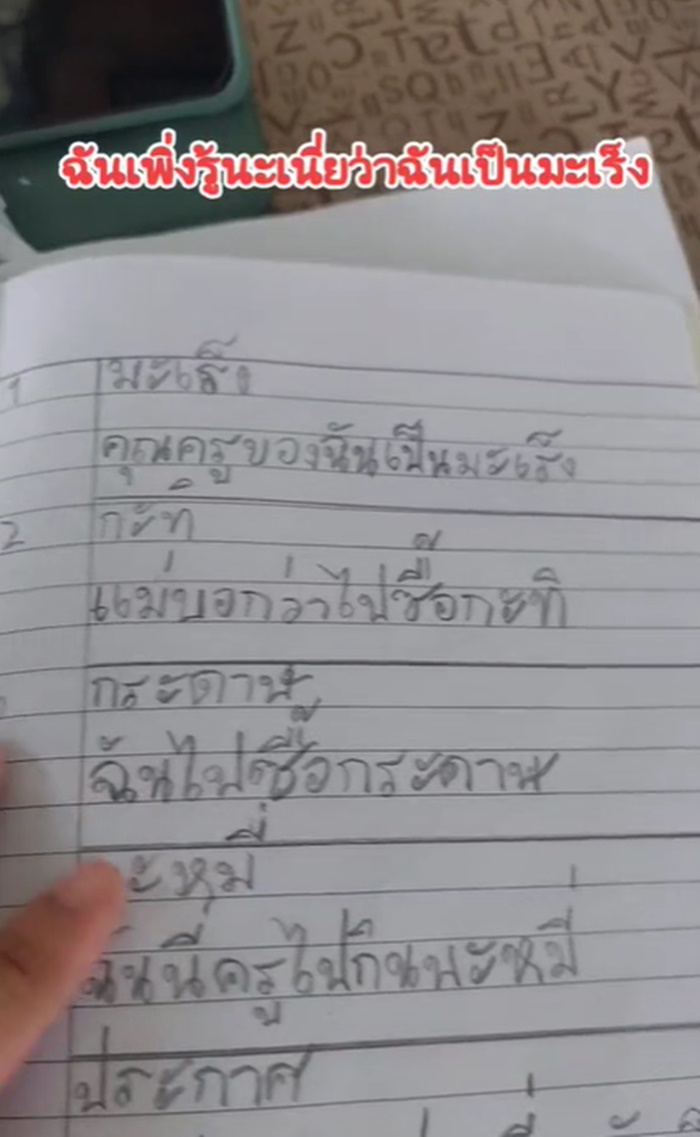 ฉันเพิ่งรู้นะเนี่ยว่าฉันเป็นมะเร็ง
1 มะเร็ง
คุณครูของฉันเป็นมะเร็ง
2 กะทิ
แม่บอกว่าไปซื้อกะทิ
กระดาษ
ฉันไปซื้อกระดาษ
ะหมี่
ครูไปกินบะหมี่
ประกาศ